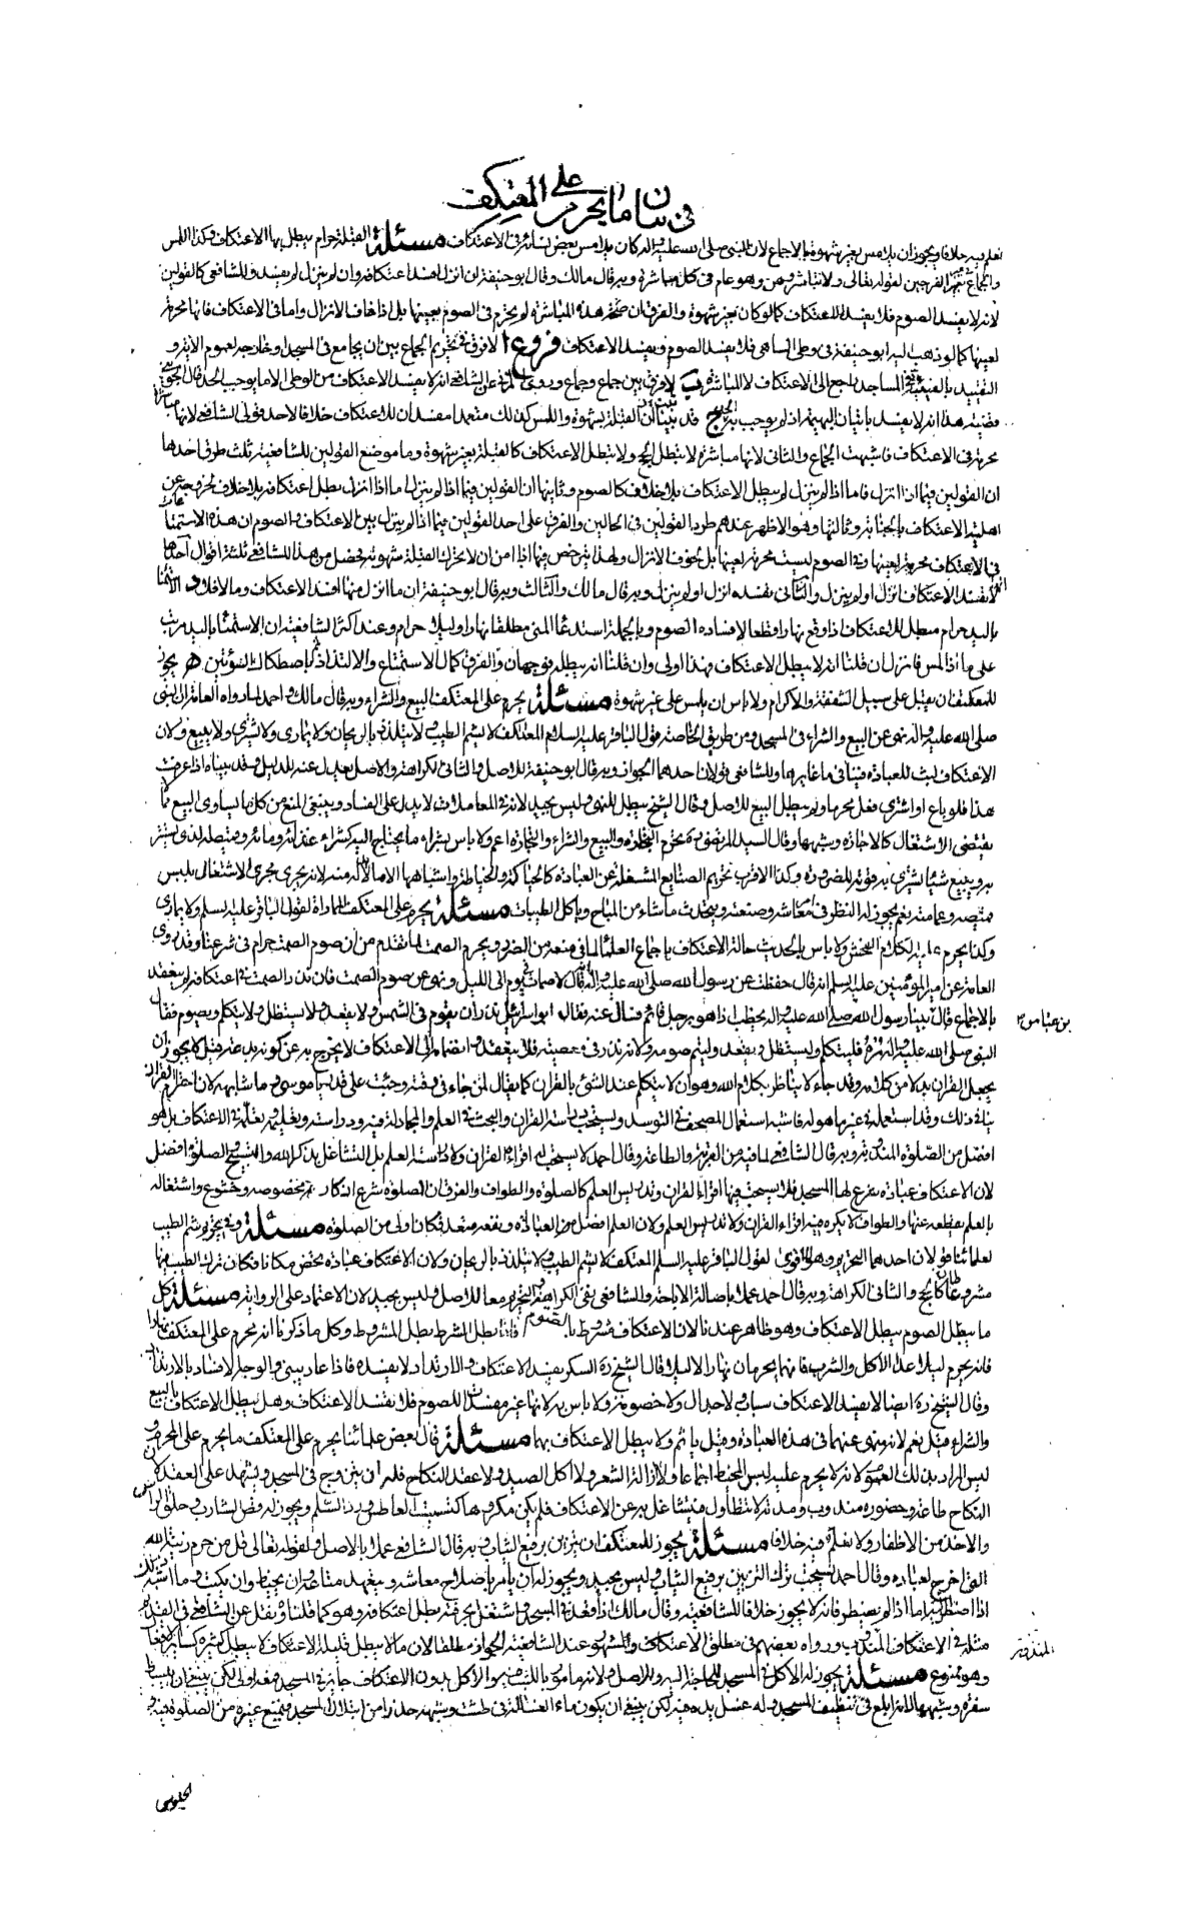 في بيان ما يحرم على المعتكف
نعلم فيه خلافا ويجوز ان يلامس بغير شهوة بالاجماع لان النبي صلى الله عليه واله كان يلامس بعض نسائه في الاعتكاف مسئلة القبلة حرام يبطل بها الاعتكاف وكذا اللمس
والجماع في غير الفرجين لقوله تعالى ولا تباشروهن وهو عام في كل مباشرة وبه قال مالك وقال ابو حنيفة ان انزل افسد اعتكافه وان لم ينزل لم يفسد وللشافعي كالقولين
لانه لا يفسد الصوم فلا يفسد الاعتكاف كما لو كان بغير شهوة والفرق ان هذه المباشرة لم يحرم في الصوم بعينها بل اذا خاف الانزال واما في الاعتكاف فانها محرمة
لعينها كما لو ذهب اليه ابو حنيفة في وطى الساهي فلا يفسد الصوم ويفسد الاعتكاف فروع ا لا فرق في تحريم الجماع بين ان يجامع في المسجد او خارجه لعموم الاية و
التقييد بالعينية في المساجد راجع الى الاعتكاف لا للمباشرة ب لا فرق بين جماع وجماع وروى المزني عن الشافعي انه لا يفسد الاعتكاف من الوطى الا ما يوجب الحد قال الجويني
قضية هذا انه لا يفسد باتيان البهيمة اذا لم يوجب به الحد ج قد بينا ان القبلة بشهوة واللمس كذلك متعمدا مفسدان للاعتكاف خلافا لاحد قولي الشافعي لانها مباشرة
محرمة في الاعتكاف فاشبهت الجماع والثاني لانها مباشرة لا تبطل الحج ولا تبطل الاعتكاف كالقبلة بغير شهوة وما موضع القولين للشافعية ثلث طرق احدها
ان القولين فيما اذا انزل فاما اذا لم ينزل لم يبطل الاعتكاف بلا خلاف كالصوم وثانيها ان القولين فيما اذا لم ينزل اما اذا انزل بطل اعتكافه بلا خلاف لخروجه عن
اهلية الاعتكاف بالجنابة وثالثها وهو الاظهر عندهم طرد القولين في الحالين والفرق على احد القولين فيما اذا لم ينزل بين الاعتكاف والصوم ان هذه الاستمتاعات
في الاعتكاف محرمة لعينها وفي الصوم ليست محرمة لعينها بل لخوف الانزال ولهذا يترخص فيها اذا امن ان لا تحرك القبلة شهوته فحصل من هذا للشافعي ثلثة اقوال احدها
انها لا تفسد الاعتكاف انزل او لم ينزل والثاني تفسده انزل او لم ينزل وبه قال مالك والثالث وبه قال ابو حنيفة ان ما انزل منها افسد الاعتكاف وما لا فلا د الاستمناء
باليد حرام مبطل للاعتكاف اذا وقع نهارا قطعا لافساده الصوم وبالجملة استدعاء المني مطلقا نهارا وليلا حرام وعند اكثر الشافعية ان الاستمناء باليد مرتب
على ما اذا لمس فانزل ان قلنا انه لا يبطل الاعتكاف فهذا اولى وان قلنا انه يبطله فوجهان والفرق كمال الاستمتاع والالتذاذ ثم باصطكاك السوئتين ه يجوز
للمعتكف ان يقبل على سبيل الشفقة والاكرام ولا باس ان يلمس على غير شهوة مسئلة يحرم على المعتكف البيع والشراء وبه قال مالك واحمد لما رواه العامة ان النبي
صلى الله عليه واله نهى عن البيع والشراء في المسجد ومن طريق الخاصة قول الباقر عليه السلام المعتكف لا يشم الطيب ولا يتلذذ بالريحان ولا يماري ولا يشتري ولا يبيع ولان
الاعتكاف لبث للعبادة فينافي ما غايرها وللشافعي قولان احدهما الجواز وبه قال ابو حنيفة للاصل والثاني الكراهة والاصل يعدل عنه للدليل وقد بيناه اذا عرفت
هذا فلو باع او اشترى فعل محرما ولم يبطل البيع للاصل وقال الشيخ يبطل للنهي وليس بجيد لانه في المعاملات لا يدل على الفساد وينبغي المنع من كل ما يساوي البيع مما
يقتضي الاشتغال كالاجارة وشبهها وقال السيد المرتضى ره يحرم التجارة والبيع والشراء والتجارة اعم ولا باس بشراء ما يحتاج اليه كشراء غذائه ومائه وقميصه الذي يستتر
به ويبيع شيئا يشتري به قوته للضرورة وكذا الاقرب تحريم الصنايع المشغلة عن العبادة كالحياكة والخياطة واشباههما الا ما لا بد منه لانه يجري مجرى الاشتغال بلبس
قميصه وعمامته نعم يجوز له النظر في معاشه وصنعته ويتحدث ما شاء من المباح وياكل الطيبات مسئلة يحرم على المعتكف المماراة لقول الباقر عليه السلم ولا يماري
وكذا يحرم عليه الكلام الفحش ولا باس بالحديث حالة الاعتكاف باجماع العلماء لما في منعه من الضرر ويحرم الصمت لما تقدم من ان صوم الصمت حرام في شرعنا وقد روى
العامة عن امير المؤمنين عليه السلم انه قال حفظت عن رسول الله صلى الله عليه واله انه قال لا صمات يوم الى الليل ونهى عن صوم الصمت فان نذر الصمت في اعتكافه لم ينعقد
بالاجماع قال بينا رسول الله صلى الله عليه واله يخطب اذا هو برجل قائم فسال عنه فقالوا ابو اسرائيل نذر ان يقوم في الشمس ولا يقعد ولا يستظل ولا يتكلم ويصوم فقال
بن عباس
النبي صلى الله عليه واله مروه فليتكلم وليستظل وليقعد وليتم صومه ولانه نذر في معصية فلا ينعقد وانضمامه الى الاعتكاف لا يخرج به عن كونه بدعة قيل لا يجوز ان
يجعل القران بدلا من كلامه وقد جاء لا يناظر بكلام الله وهو ان لا يتكلم عند الشئ بالقران كما يقال لمن جاء في وقته وجئت على قدر يا موسى وما شابهه لان احترام القران
ينافي ذلك وقد استعمله في غير ما هو له فاشبه استعمال المصحف في التوسد ويستحب دراسة القران والبحث في العلم والمجادلة فيه ودراسته وتعليمه وتعلمه في الاعتكاف بل هو
افضل من الصلوة المندوبة وبه قال الشافعي لما فيه من القربة والطاعة وقال احمد لا يستحب له اقراء القران ولا دراسة العلم بل التشاغل بذكر الله والتسبيح والصلوة افضل
لان الاعتكاف عبادة شرع لها المسجد فلا يستحب فيها اقراء القران وتدريس العلم كالصلوة والطواف والفرق ان الصلوة شرع اذكار مخصوصة وخشوع واشتغاله
بالعلم يقطعه عنها والطواف لا يكره فيه اقراء القران ولا تدريس العلم ولان العلم افضل من العبادة ونفعه متعد فكان اولى من الصلوة مسئلة وفي تحريم شم الطيب
لعلمائنا قولان احدهما التحريم وهو الاقوى لقول الباقر عليه السلم المعتكف لا يشم الطيب ولا يتلذذ بالريحان ولان الاعتكاف عبادة تختص مكانا فكان ترك الطيب فيها
مشروعا كالحج والثاني الكراهة وبه قال احمد عملا باصالة الاباحة والشافعي نفى الكراهة والتحريم معا للاصل وليس بجيد لان الاعتماد على الرواية مسئلة كل
ما يبطل الصوم يبطل الاعتكاف وهو ظاهر عندنا لان الاعتكاف مشروط بالصوم فاذا بطل الشرط بطل المشروط وكل ما ذكرنا انه محرم على المعتكف نهارا
فانه يحرم ليلا عدا الاكل والشرب فانهما يحرمان نهارا لا ليلا قال الشيخ ره السكر يفسد الاعتكاف والارتداد لا يفسده فاذا عاد يبني والوجه الافساد بالارتداد
وقال الشيخ ره ايضا لا يفسد الاعتكاف سباب ولا جدال ولا خصومة ولا باس به لانها غير مفسدات للصوم فلا تفسد الاعتكاف وهل يبطل الاعتكاف بالبيع
والشراء قيل نعم لانه منهي عنهما في هذه العبادة وقيل ياثم ولا يبطل الاعتكاف بهما مسئلة قال بعض علمائنا يحرم على المعتكف ما يحرم على المحرم و
ليس المراد بذلك العموم لانه لا يحرم عليه لبس المخيط اجماعا ولا ازالة الشعر ولا اكل الصيد ولا عقد النكاح فله ان يتزوج في المسجد ويشهد على العقد لان
النكاح طاعة وحضوره مندوب ومدته لا تتطاول فيتشاغل به عن الاعتكاف فلم يكن مكروها كتسميت العاطس ورد السلم ويجوز له قص الشارب وحلق الراس
والاخذ من الاظفار ولا نعلم فيه خلافا مسئلة يجوز للمعتكف ان يتزين برفيع الثياب وبه قال الشافعي عملا بالاصل ولقوله تعالى قل من حرم زينة الله
التي اخرج لعباده وقال احمد يستحب ترك التزيين برفيع الثياب وليس بجيد ويجوز له ان يامر باصلاح معاشه ويتعهد متاعه وان يخيط وان يكتب وما اشبه ذلك
اذا اضطر اليه اما اذا لم يضطر فانه لا يجوز خلافا للشافعية وقال مالك اذا قعد في المسجد واشتغل بحرفته بطل اعتكافه وهو كما قلناه ونقل عن الشافعي في القديم
مثله في الاعتكاف المنذور ورواه بعضهم في مطلق الاعتكاف والمشهور عند الشافعية الجواز مطلقا لان ما لا يبطل قليله الاعتكاف لا يبطل كثيره كسائر الافعال
وهو ممنوع مسئلة يجوز له الاكل في المسجد للحاجة اليه وللاصل ولانه مامور باللبث فيه والاكل بدون الاعتكاف جائز في المسجد فمعه اولى لكن ينبغي ان يبسط
سفرة وشبهها لانه ابلغ في تنظيف المسجد وله غسل يده فيه لكن ينبغي ان يكون ماء الغسالة في طشت وشبهه حذرا من ابتلال المسجد فيمتنع غيره من الصلوة فيه و
الجلوس